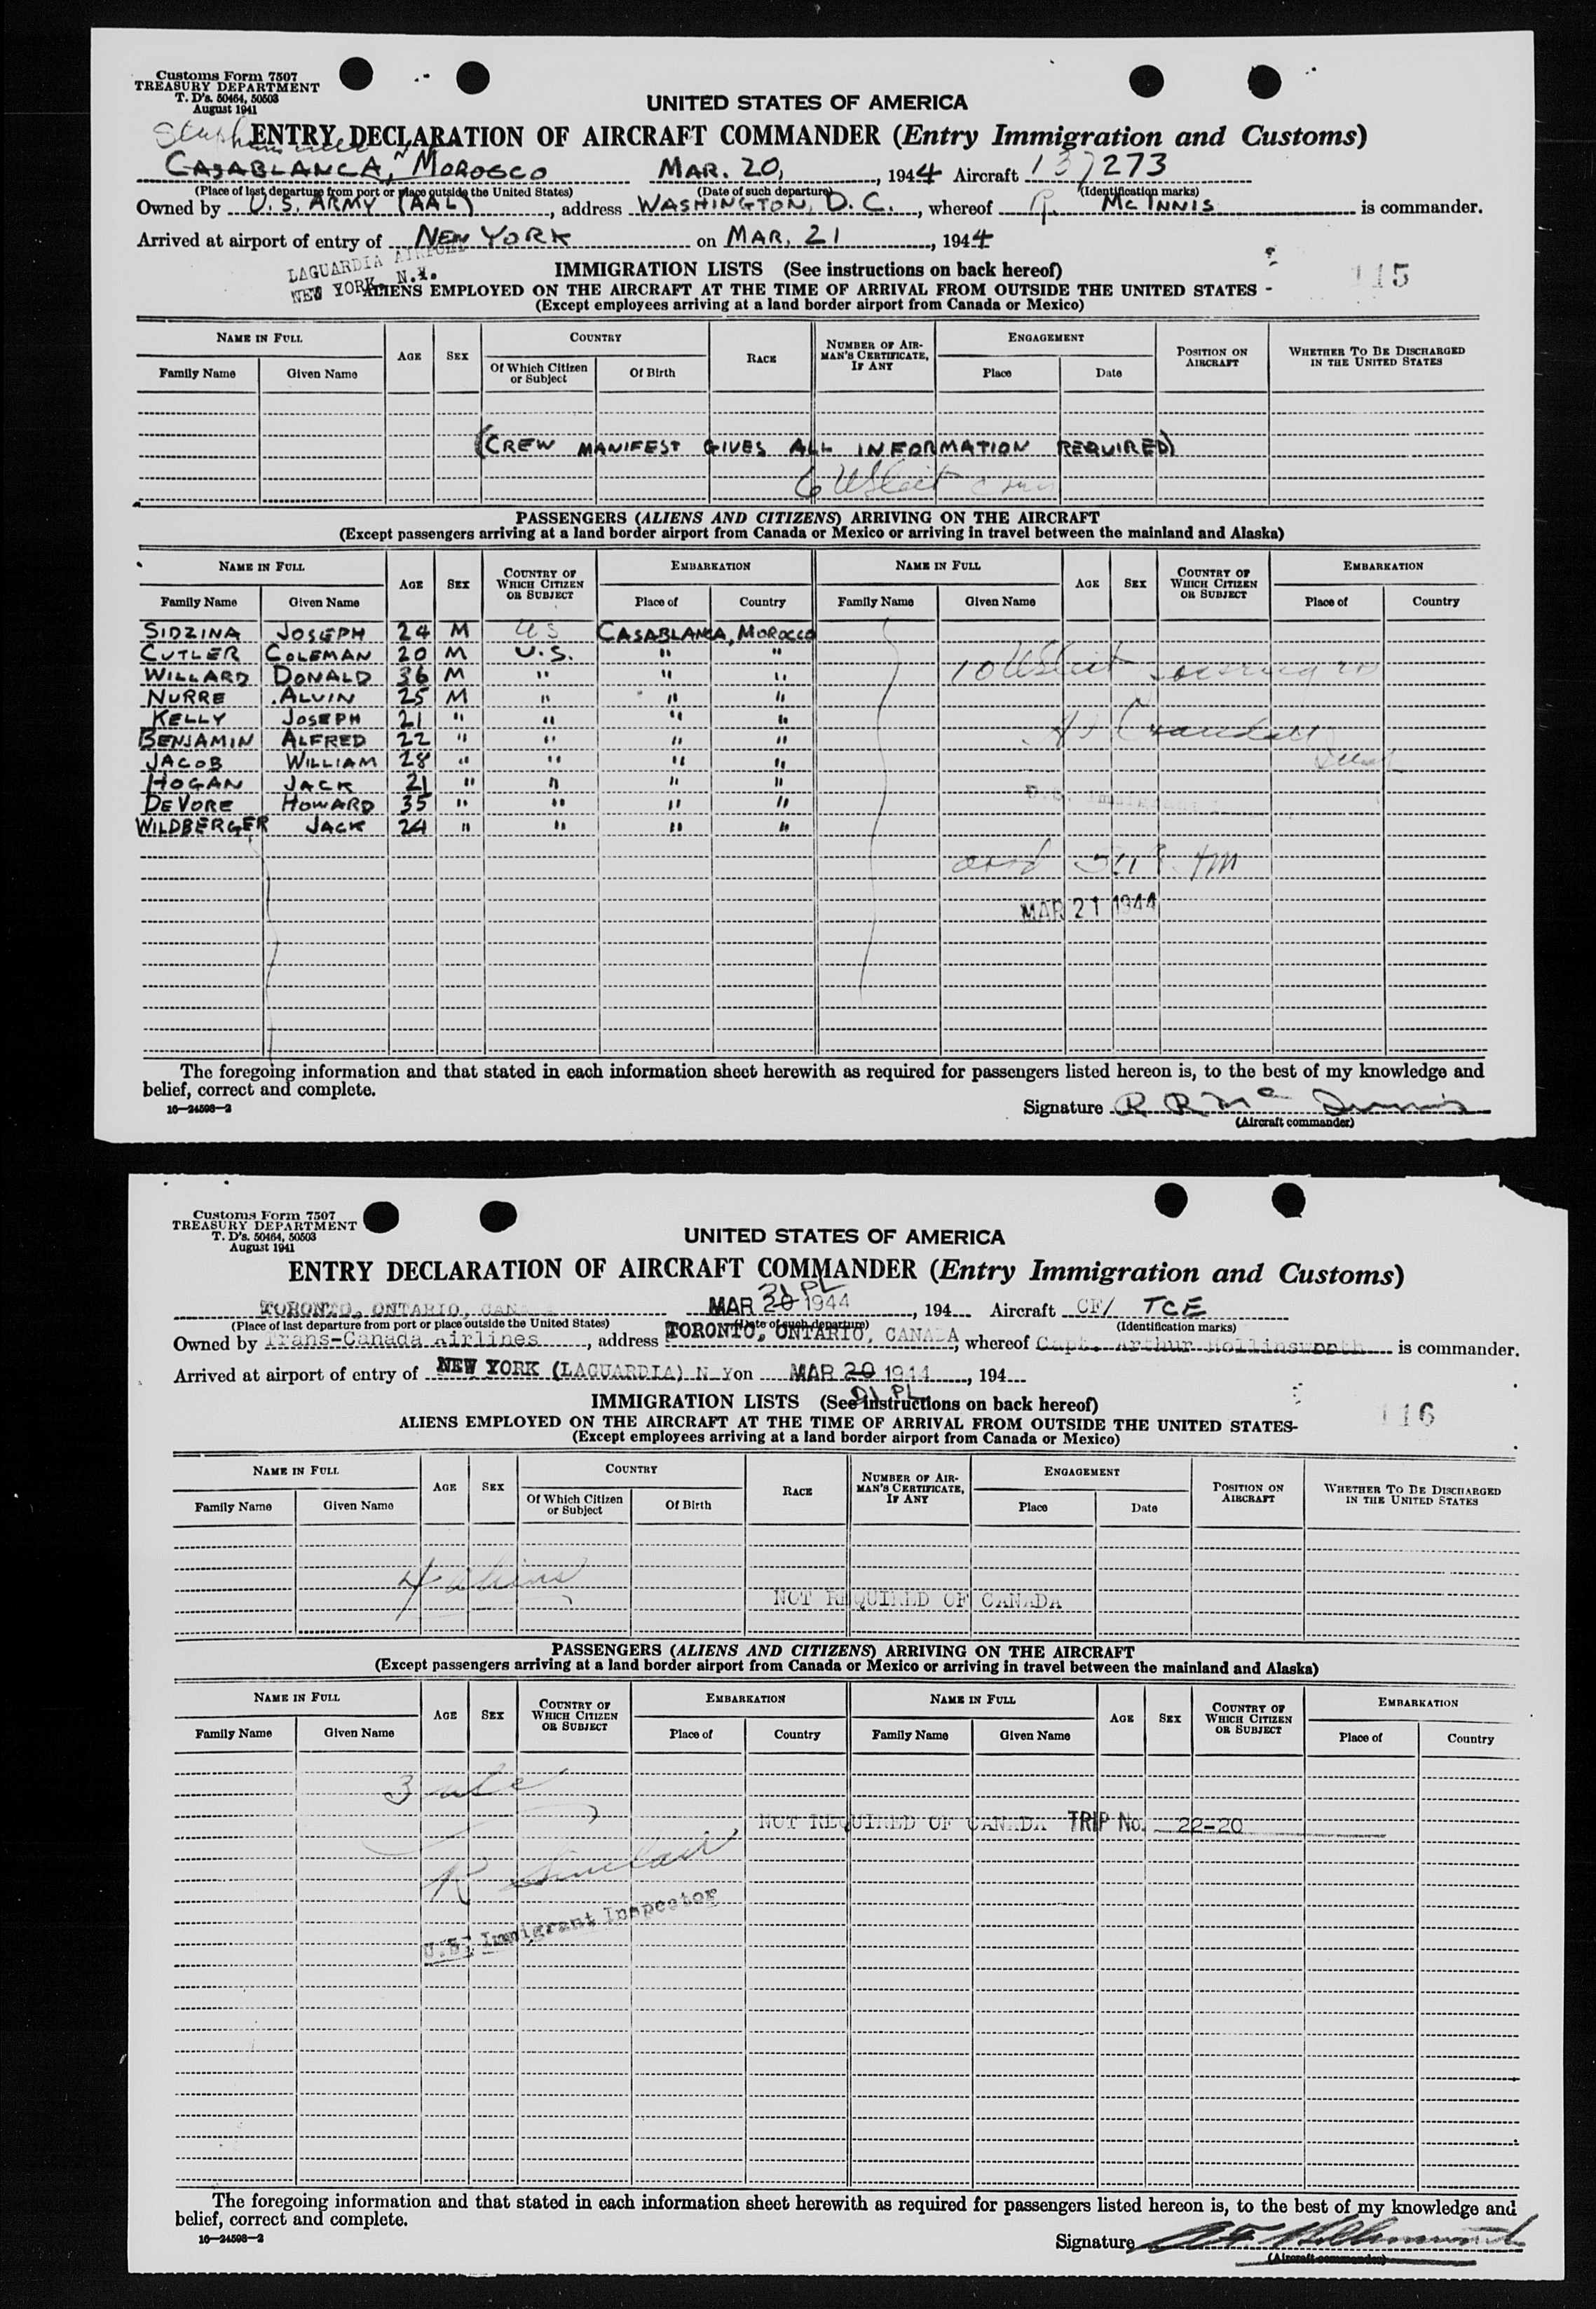 Customs Form 7507
TREASURY DEPARTMENT
T. D's. 50464, 50503
August 1941
UNITED STATES OF AMERICA
ENTRY DECLARATION OF AIRCRAFT COMMANDER (Entry Immigration and Customs)
CASABLANCA, MOROCCO MAR. 20, 1944 Aircraft 137273
(Place of last departure from port or place outside the United States) (Date of such departure) (Identification marks)
Owned by U.S. ARMY (AAL), address WASHINGTON, D.C., whereof R. MCINNIS is commander.
Arrived at airport of entry of NEW YORK on MAR. 21, 1944
LAGUARDIA AIRPORT
NEW YORK, N.Y.
IMMIGRATION LISTS (See instructions on back hereof)
115
ALIENS EMPLOYED ON THE AIRCRAFT AT THE TIME OF ARRIVAL FROM OUTSIDE THE UNITED STATES -
(Except employees arriving at a land border airport from Canada or Mexico)
NAME IN FULL AGE SEX COUNTRY RACE NUMBER OF AIRMAN'S CERTIFICATE, IF ANY ENGAGEMENT POSITION ON AIRCRAFT WHETHER TO BE DISCHARGED IN THE UNITED STATES
Family Name Given Name Of Which Citizen or Subject Of Birth Place Date
(CREW MANIFEST GIVES ALL INFORMATION REQUIRED)
6 US cit
PASSENGERS (ALIENS AND CITIZENS) ARRIVING ON THE AIRCRAFT
(Except passengers arriving at a land border airport from Canada or Mexico or arriving in travel between the mainland and Alaska)
NAME IN FULL AGE SEX COUNTRY OF WHICH CITIZEN OR SUBJECT EMBARKATION NAME IN FULL AGE SEX COUNTRY OF WHICH CITIZEN OR SUBJECT EMBARKATION
Family Name Given Name Place of Country Family Name Given Name Place of Country
SIDZINA JOSEPH 24 M US CASABLANCA, MOROCCO
CUTLER COLEMAN 20 M U.S. " "
WILLARD DONALD 36 M " " " 10 US cit
NURRE ALVIN 25 M " " "
KELLY JOSEPH 21 " " " "
BENJAMIN ALFRED 22 " " " "
JACOB WILLIAM 28 " " " "
HOGAN JACK 21 " " " "
DEVORE HOWARD 35 " " " "
WILDBERGER JACK 24 " " " "
MAR 21 1944
The foregoing information and that stated in each information sheet herewith as required for passengers listed hereon is, to the best of my knowledge and
belief, correct and complete.
16—24598-2
Signature R R McInnis
(Aircraft commander)
Customs Form 7507
TREASURY DEPARTMENT
T. D's. 50464, 50503
August 1941
UNITED STATES OF AMERICA
ENTRY DECLARATION OF AIRCRAFT COMMANDER (Entry Immigration and Customs)
21 PL
TORONTO, ONTARIO, CANADA MAR 20 1944, 194 Aircraft CF/ TCE
(Place of last departure from port or place outside the United States) (Date of such departure) (Identification marks)
Owned by Trans-Canada Airlines, address TORONTO, ONTARIO, CANADA, whereof Capt. Arthur Hollinsworth is commander.
Arrived at airport of entry of NEW YORK (LAGUARDIA) N Y on MAR 20 1944, 194
21 PL
IMMIGRATION LISTS (See instructions on back hereof)
116
ALIENS EMPLOYED ON THE AIRCRAFT AT THE TIME OF ARRIVAL FROM OUTSIDE THE UNITED STATES-
(Except employees arriving at a land border airport from Canada or Mexico)
NAME IN FULL AGE SEX COUNTRY RACE NUMBER OF AIRMAN'S CERTIFICATE, IF ANY ENGAGEMENT POSITION ON AIRCRAFT WHETHER TO BE DISCHARGED IN THE UNITED STATES
Family Name Given Name Of Which Citizen or Subject Of Birth Place Date
4 aliens
NOT REQUIRED OF CANADA
PASSENGERS (ALIENS AND CITIZENS) ARRIVING ON THE AIRCRAFT
(Except passengers arriving at a land border airport from Canada or Mexico or arriving in travel between the mainland and Alaska)
NAME IN FULL AGE SEX COUNTRY OF WHICH CITIZEN OR SUBJECT EMBARKATION NAME IN FULL AGE SEX COUNTRY OF WHICH CITIZEN OR SUBJECT EMBARKATION
Family Name Given Name Place of Country Family Name Given Name Place of Country
3 usc
NOT REQUIRED OF CANADA TRIP No. 22-20
R Sinclair
U.S. Immigrant Inspector
The foregoing information and that stated in each information sheet herewith as required for passengers listed hereon is, to the best of my knowledge and
belief, correct and complete.
16—24598-2
Signature
(Aircraft commander)